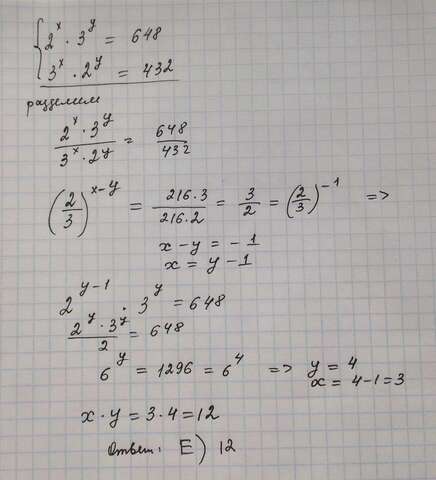 { 2^x · 3^y = 648
3^x · 2^y = 432
разделим
\frac{2^x · 3^y}{3^x · 2^y} = \frac{648}{432}
(\frac{2}{3})^{x-y} = \frac{216·3}{216·2} = \frac{3}{2} = (\frac{2}{3})^{-1} =>
x - y = -1
x = y - 1
2^{y-1} · 3^y = 648
\frac{2^y · 3^y}{2} = 648
6^y = 1296 = 6^4 => y = 4
x = 4-1=3
x · y = 3·4=12
Ответ: E) 12